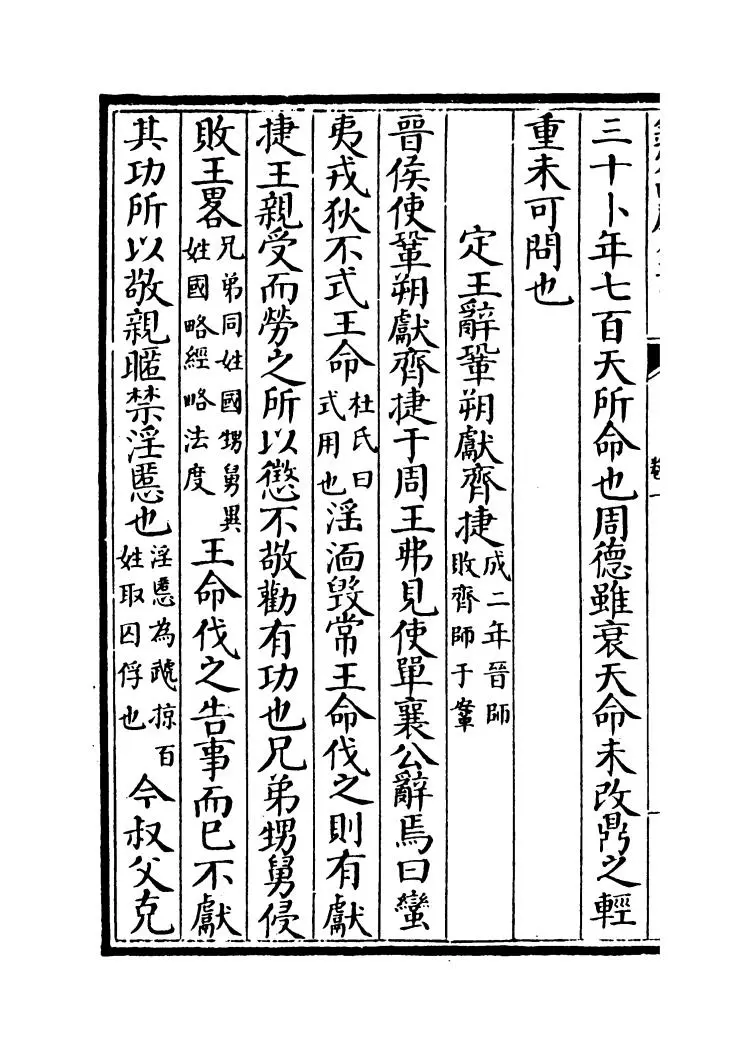 三十卜年七百天所命也周德雖衰天命未改鼎之輕
重未可問也
定王辭鞏朔獻齊捷成二年晉師敗齊師于鞌
晉侯使鞏朔獻齊捷于周王弗見使單襄公辭焉曰蠻
夷戎狄不式王命杜氏曰式用也淫湎毀常王命伐之則有獻
捷王親受而勞之所以懲不敬勸有功也兄弟甥舅侵
敗王畧兄弟同姓國甥舅異姓國略經略法度王命伐之告事而已不獻
其功所以敬親暱禁淫慝也淫慝為虣掠百姓取囚俘也今叔父克